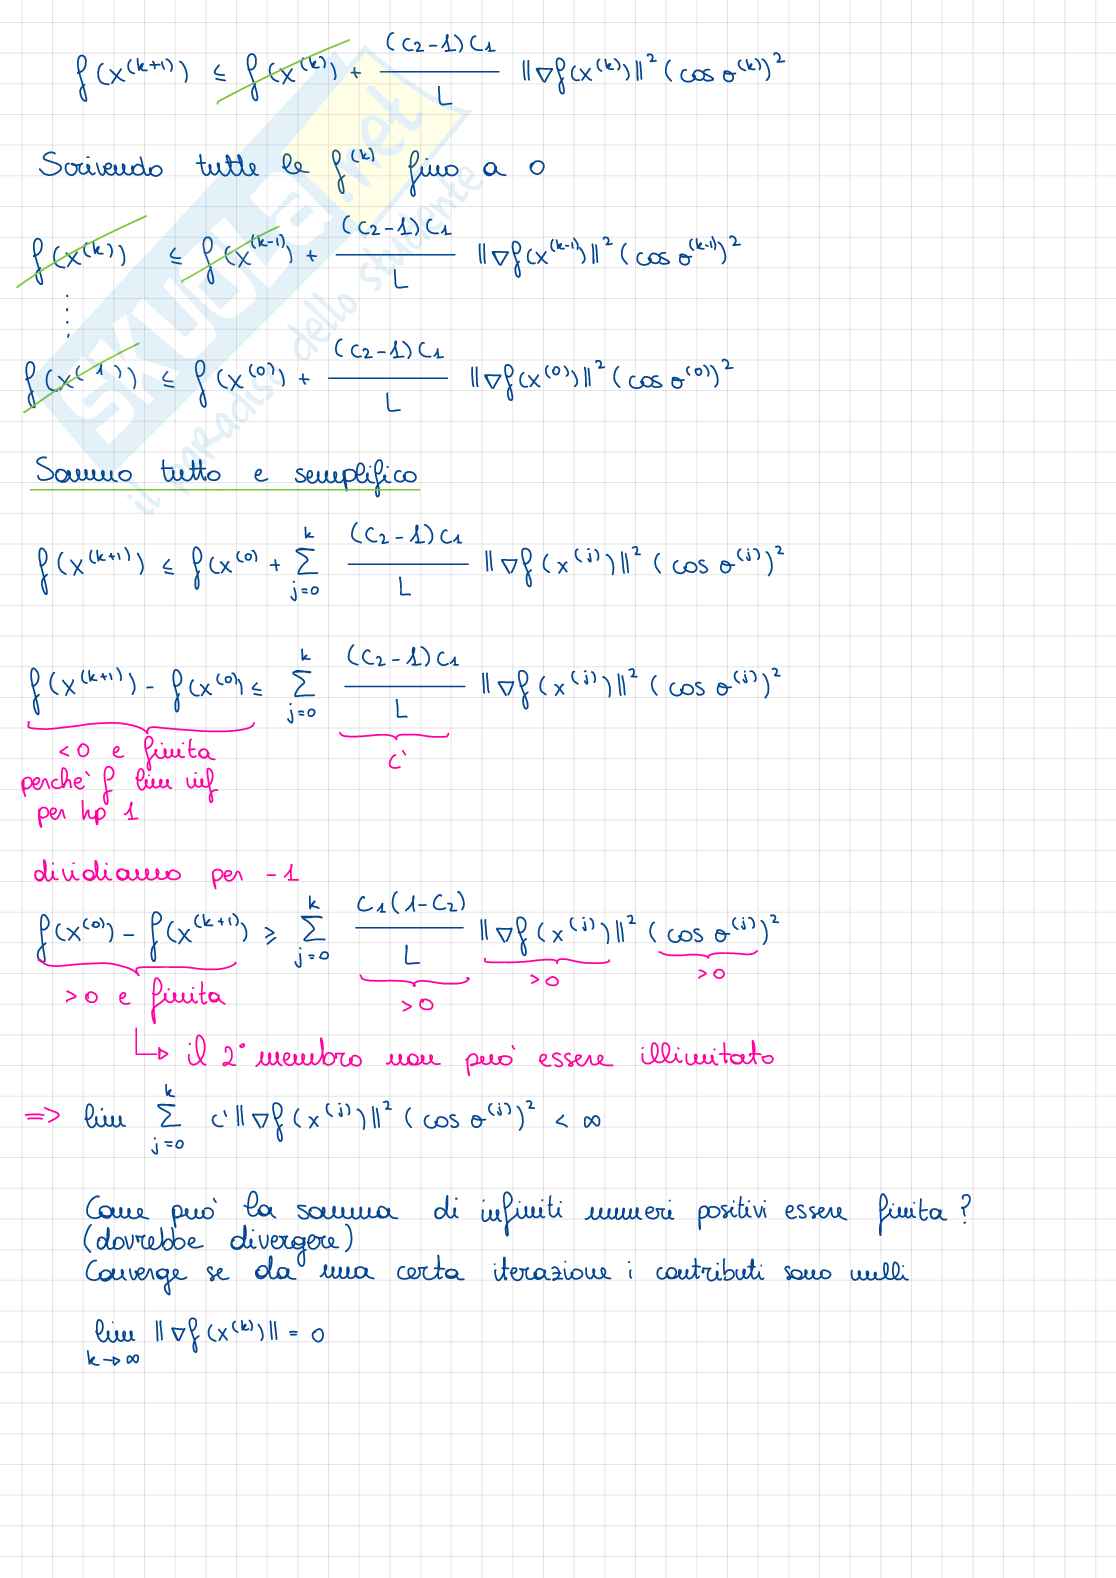 f(x^(k+1)) ≤ f(x^(k)) + (c₂-1)c₁ / L ‖∇f(x^(k))‖² (cos θ^(k))²
Scrivendo tutte le f^(k) fino a 0
f(x^(k)) ≤ f(x^(k-1)) + (c₂-1)c₁ / L ‖∇f(x^(k-1))‖² (cos θ^(k-1))²
⋮
f(x^(1)) ≤ f(x^(0)) + (c₂-1)c₁ / L ‖∇f(x^(0))‖² (cos θ^(0))²
Sommo tutto e semplifico
f(x^(k+1)) ≤ f(x^(0) + Σ_{j=0}^{k} (c₂-1)c₁ / L ‖∇f(x^(j))‖² (cos θ^(j))²
f(x^(k+1)) - f(x^(0)) ≤ Σ_{j=0}^{k} (c₂-1)c₁ / L ‖∇f(x^(j))‖² (cos θ^(j))²
<0 e finita c'
perche' f lim inf
per hp 1
dividiamo per -1
f(x^(0)) - f(x^(k+1)) ≥ Σ_{j=0}^{k} c₁(1-c₂) / L ‖∇f(x^(j))‖² (cos θ^(j))²
>0 e finita >0 >0 >0
↳ il 2° membro non puo' essere illimitato
=> lim Σ_{j=0}^{k} c'‖∇f(x^(j))‖² (cos θ^(j))² < ∞
Come puo' la somma di infiniti numeri positivi essere finita?
(dovrebbe divergere)
Converge se da una certa iterazione i contributi sono nulli
lim_{k→∞} ‖∇f(x^(k))‖ = 0
SKUOLA.net
il paradiso dello studente